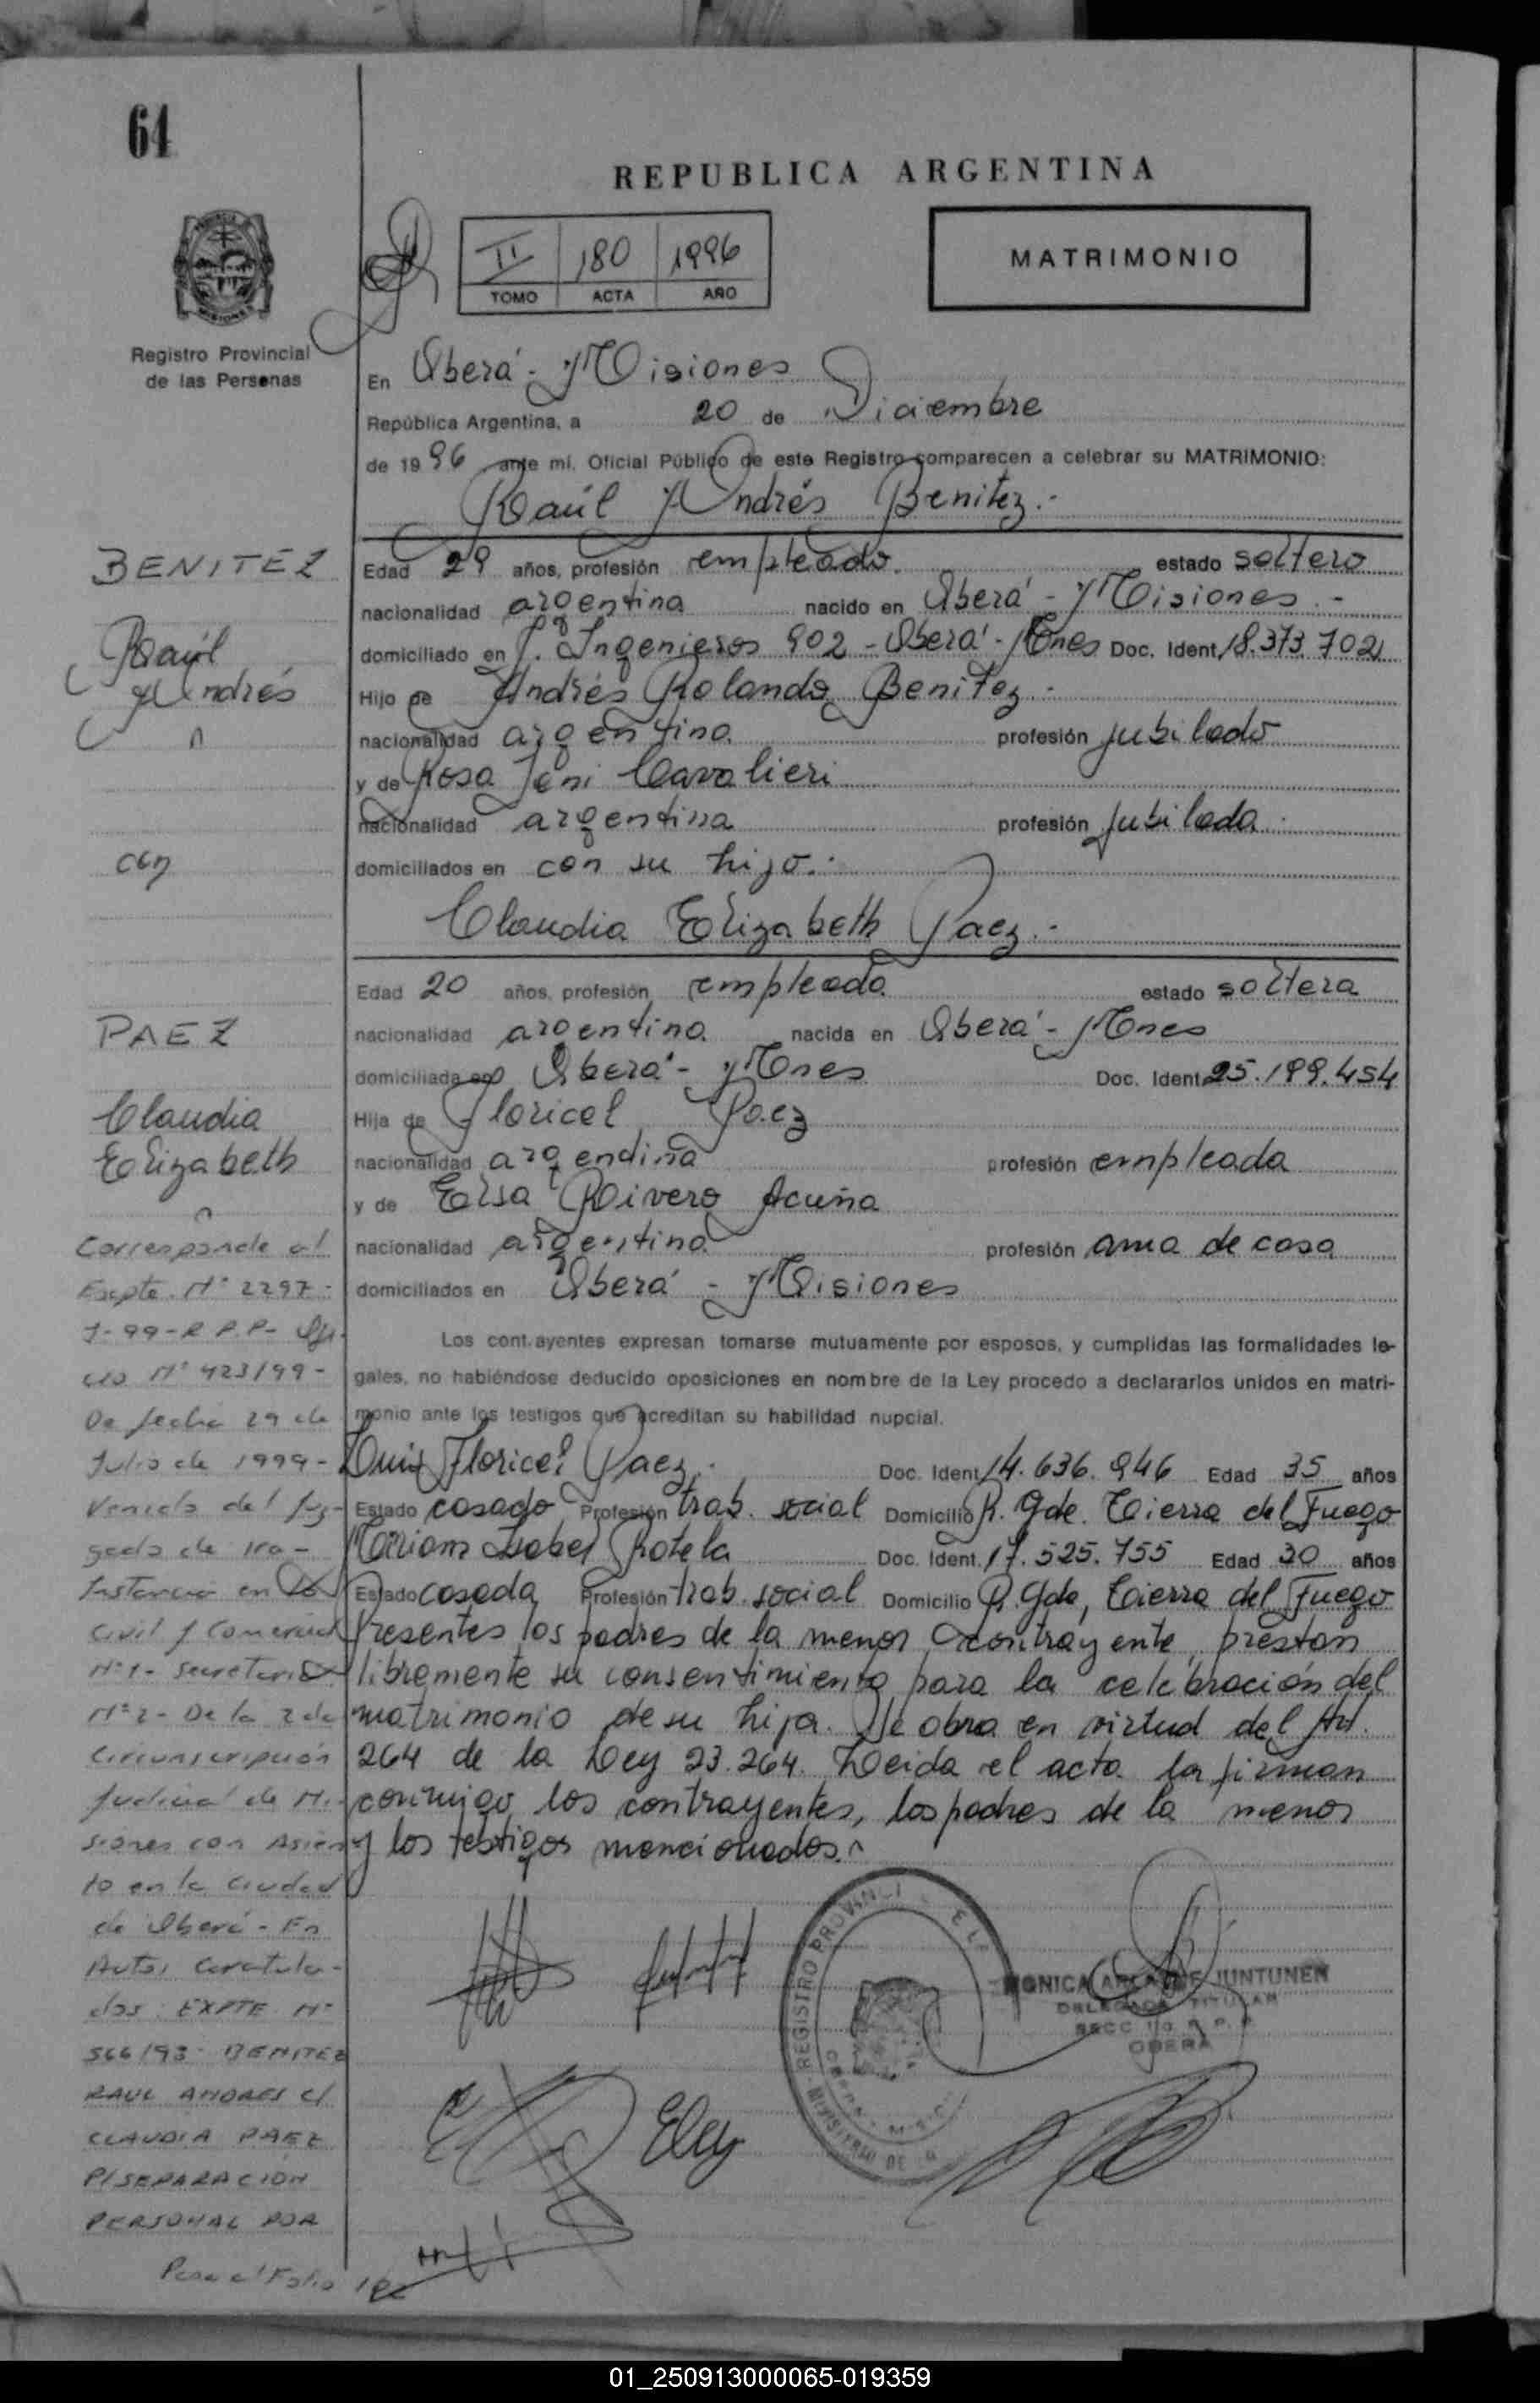 64
REPUBLICA ARGENTINA
II 180 1996
TOMO ACTA AÑO
MATRIMONIO
Registro Provincial
de las Personas
En Oberá - Misiones
República Argentina, a 20 de Diciembre
de 1996 ante mi, Oficial Público de este Registro comparecen a celebrar su MATRIMONIO:
Raúl Andrés Benitez.-
BENITEZ
Raúl
Andrés
Edad 29 años, profesión empleado. estado soltero
nacionalidad argentina nacido en Oberá - Misiones.-
domiciliado en J. Ingenieros 902 - Oberá - Mnes Doc. Ident. 18.373.702
Hijo de Andrés Rolando Benitez.-
nacionalidad argentina profesión jubilado
y de Rosa Cavalieri
nacionalidad argentina profesión jubilada
domiciliados en con su hijo.
con
Claudia Elizabeth Paez.-
Edad 20 años, profesión empleada estado soltera
PAEZ
Claudia
Elizabeth
nacionalidad argentina nacida en Oberá - Mnes
domiciliada en Oberá - Mnes Doc. Ident. 25.199.454
Hija de Floricel Paez
nacionalidad argendina profesión empleada
y de Elsa Rivero Acuña
nacionalidad argentina profesión ama de casa
domiciliados en Oberá - Misiones
Los cont.ayentes expresan tomarse mutuamente por esposos, y cumplidas las formalidades le-
gales, no habiéndose deducido oposiciones en nombre de la Ley procedo a declararlos unidos en matri-
monio ante los testigos que acreditan su habilidad nupcial.
Luis Floricel Paez. Doc. Ident. 14.636.946 Edad 35 años
Estado casado Profesión trab. social Domicilio R. Gde. Tierra del Fuego
Miriam Isabel Rotela Doc. Ident. 17.525.755 Edad 30 años
Estado casada Profesión trab. social Domicilio R. Gde, Tierra del Fuego
Presentes los padres de la menor contrayente, prestan
libremente su consentimiento para la celebración del
matrimonio de su hija. Se obra en virtud del Art.
264 de la Ley 23.264. Leida el acta la firman
conmigo los contrayentes, los padres de la menor
y los testigos mencionados.
Corresponde al
Expte. Nº 2297-
J-99-R.P.P- Ofi-
cio Nº 423/99-
De fecha 29 de
Julio de 1999-
Venido del Juz-
gado de 1ra-
Instancia en lo
Civil y Comercial
Nº1- Secretaria
Nº2- De la 2da
Circunscripción
Judicial de Mi-
siones con Asien-
to en la Ciudad
de Oberá - En
Autos Caratula-
dos: EXPTE Nº
566/98- BENITEZ
RAUL ANDRES C/
CLAUDIA PAEZ
P/SEPARACION
PERSONAL POR
Pasa al Folio
REGISTRO PROVINCI
MINISTERIO DE
MONICA JUNTUNEN
DELEGADA TITULAR
OBERA
01_250913000065-019359